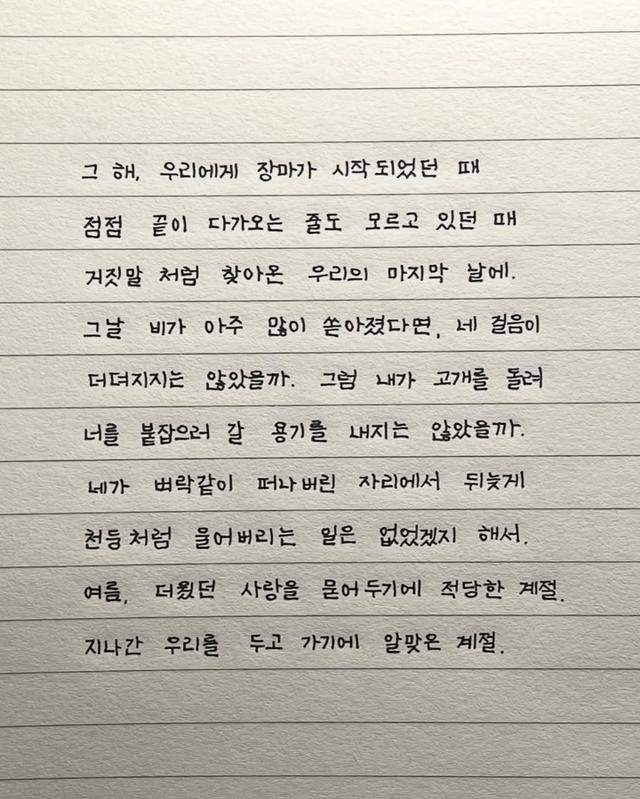 그 해, 우리에게 장마가 시작되었던 때
점점 끝이 다가오는 줄도 모르고 있던 때
거짓말 처럼 찾아온 우리의 마지막 날에.
그날 비가 아주 많이 쏟아졌다면, 네 걸음이
더뎌지지는 않았을까. 그럼 내가 고개를 돌려
너를 붙잡으러 갈 용기를 내지는 않았을까.
네가 벼락같이 떠나버린 자리에서 뒤늦게
천둥처럼 울어버리는 일은 없었겠지 해서.
여름, 더웠던 사랑을 묻어두기에 적당한 계절.
지나간 우리를 두고 가기에 알맞은 계절.